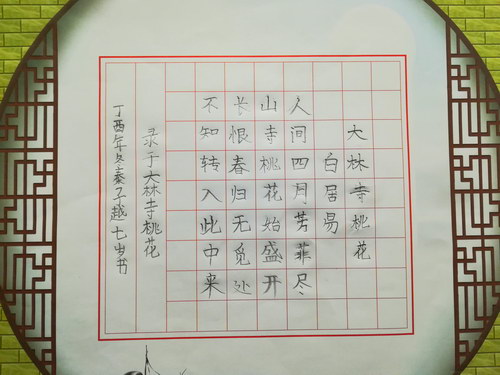 大林寺桃花
白居易
人间四月芳菲尽
山寺桃花始盛开
长恨春归无觅处
不知转入此中来
录于大林寺桃花
丁酉年冬秦子越七岁书